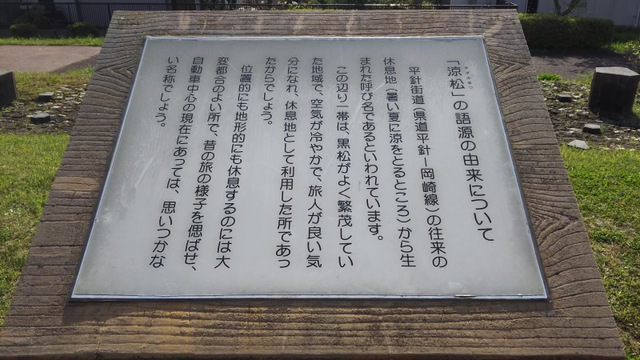 「涼松」の語源の由来について
平針街道(県道平針ー岡崎線)の往来の
休息地(暑い夏に涼をとるところ)から生
まれた呼び名であるといわれています。
この辺り一帯は、黒松がよく繁茂してい
た地域で、空気が冷やかで、旅人が良い気
分になれ、休息地として利用した所であっ
たからでしょう。
位置的にも地形的にも休息するのには大
変都合のよい所で、昔の旅の様子を偲ばせ、
自動車中心の現在にあっては、思いつかな
い名称でしょう。